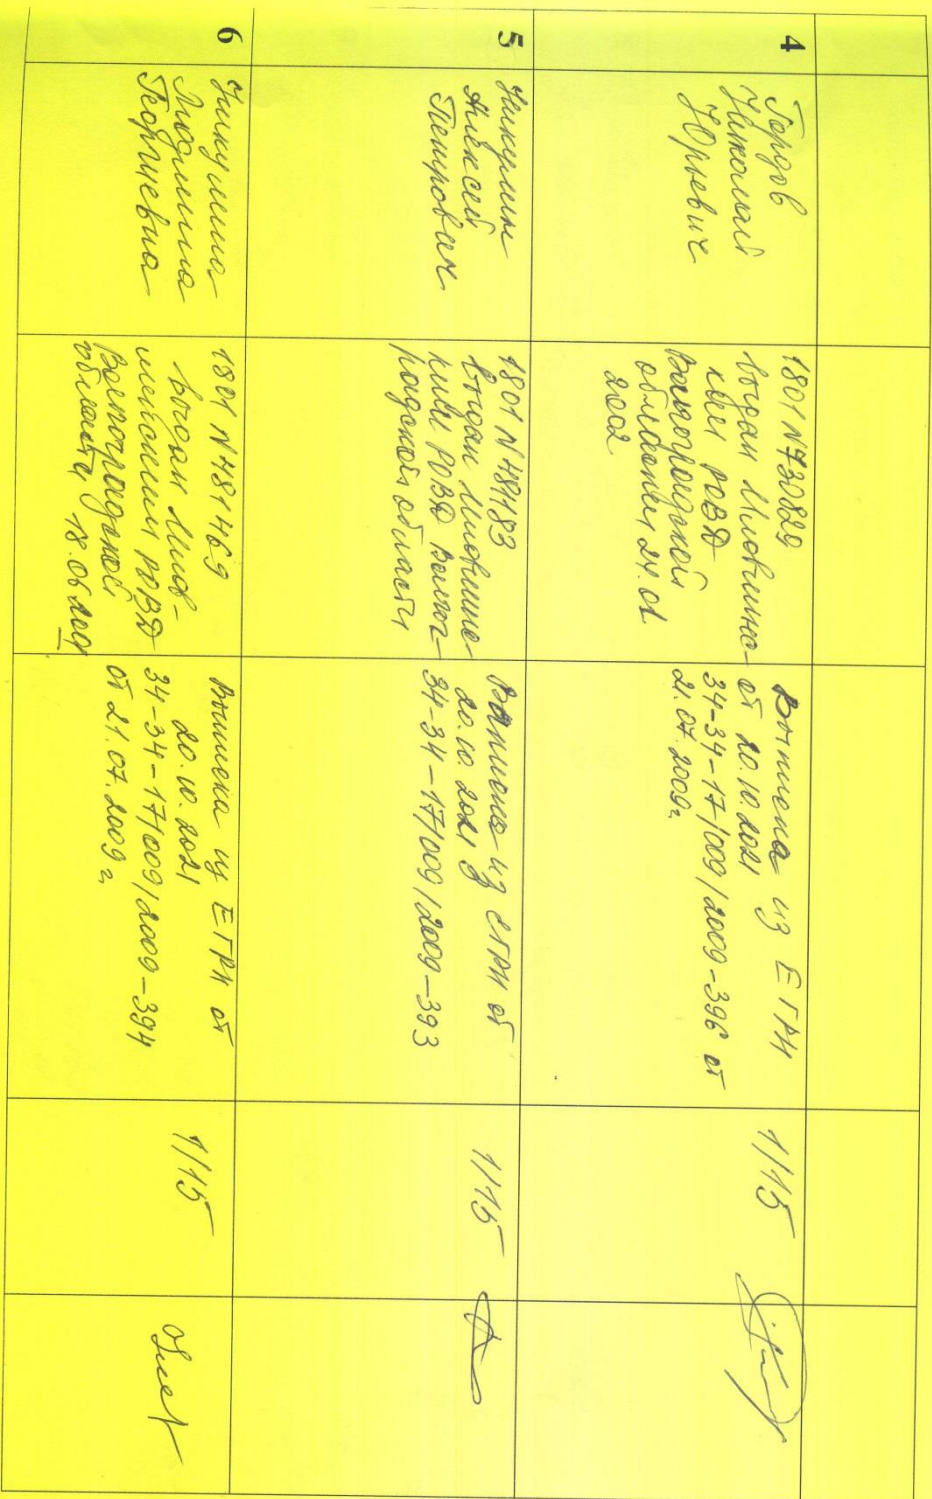 4
Гордов
Николай
Юрьевич
1801 №730829
выдан Иловлинс-
ким РОВД
Волгоградской
области 24.01
2002
Выписка из ЕГРН
от 20.10.2021
34-34-17/009/2009-396 от
21.07.2009г.
1/15
5
Никулин
Алексей
Петрович
1801 №481183
выдан Иловлинс-
ким РОВД Волгог-
радской области
Выписка из ЕГРН от
20.10.2021
34-34-17/009/2009-393
1/15
6
Никулина
Людмила
Георгиевна
1801 №481469
выдан Илов-
линским РОВД
Волгоградской
области 18.06.2001
Выписка из ЕГРН от
20.10.2021
34-34-17/009/2009-394
от 21.07.2009г.
1/15